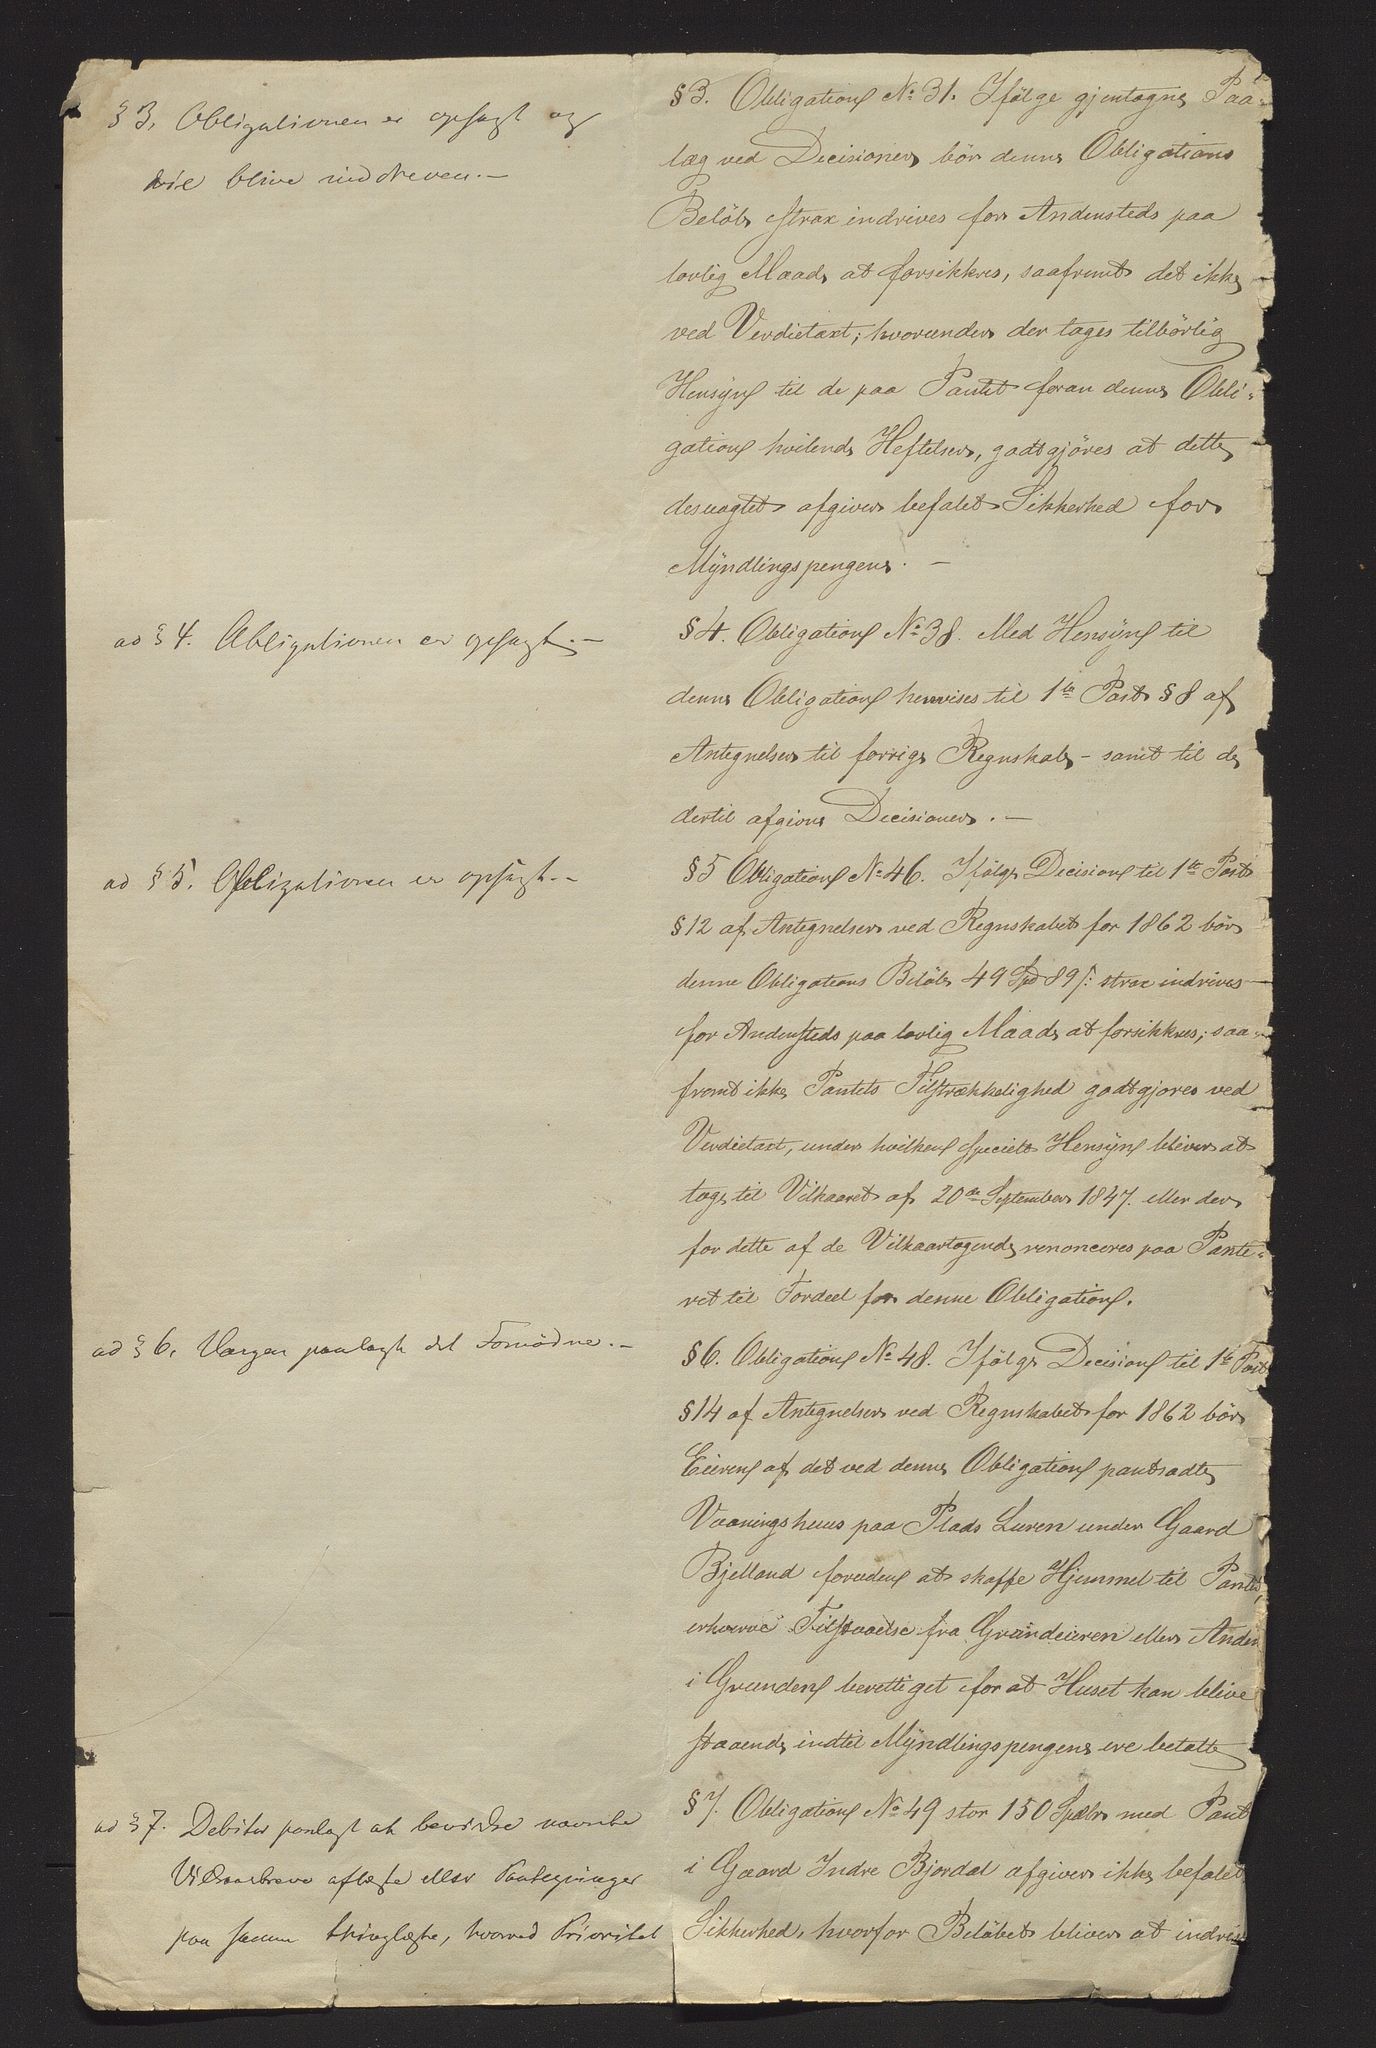 § 3. Obligationen er opsagt og
vil blive inddreven.—
ad § 4. Obligationen er opsagt.—
ad § 5. Obligationen er opsagt.—
ad § 6. Værgen paalagt det Fornødne.—
ad § 7. Debitor paalagt at bevirke nævnte
Vilkaarbreve aflæste eller Paategninger
paa samme thinglæste, hvorved Prioritet
§ 3. Obligation No 31. Ifølge gjentagne Paa-
læg ved Decisioner bör denne Obligations
Belöb strax indrives for Andensteds paa
lovlig Maade at forsikkres, saafremt det ikke
ved Verdietaxt, hvorunder der tages tilbörlig
Hensyn til de paa Pantet foran denne Obli-
gation hvilende Heftelser, godtgjöres at dette
desuagtet afgiver befalet Sikkerhed for
Myndlingspengene.—
§ 4. Obligation No 38. Med Hensyn til
denne Obligation henvises til 1te Post § 8 af
Antegnelser til forrige Regnskab – samt til de
dertil afgivne Decisioner.—
§ 5 Obligation No 46. Ifølge Decision til 1te Post
§ 12 af Antegnelser ved Regnskabet for 1862 bör
denne Obligations Belöb 49 Spd 89 s: strax indrives
for Andensteds paa lovlig Maade at forsikkres; saa-
fremt ikke Pantets Tilstrækkelighed godtgjøres ved
Verdietaxt, under hvilken specielt Hensyn bliver at
tage til Vilkaaret af 20de September 1847. eller der
for dette af de Vilkaartagende renonceres paa Pante-
ret til Fordeel for denne Obligation.
§ 6. Obligation No 48. Ifølge Decision til 1te Post
§ 14 af Antegnelser ved Regnskabet for 1862 bör
Eieren af det ved denne Obligation pantsadte
Vaaningshuus paa Plads Luren under Gaard
Bjelland foruden at skaffe Hjemmel til Pantet,
erhverve Tilstaaelse fra Grundeieren eller Anden
i Grunden berettiget for at Huset kan blive
staaende indtil Myndlingspengene ere betalte
§ 7. Obligation No 49 stor 150 Spdlr med Pant
i Gaard Indre Bjordal afgiver ikke befalet
Sikkerhed, hvorfor Belöbet bliver at indrive